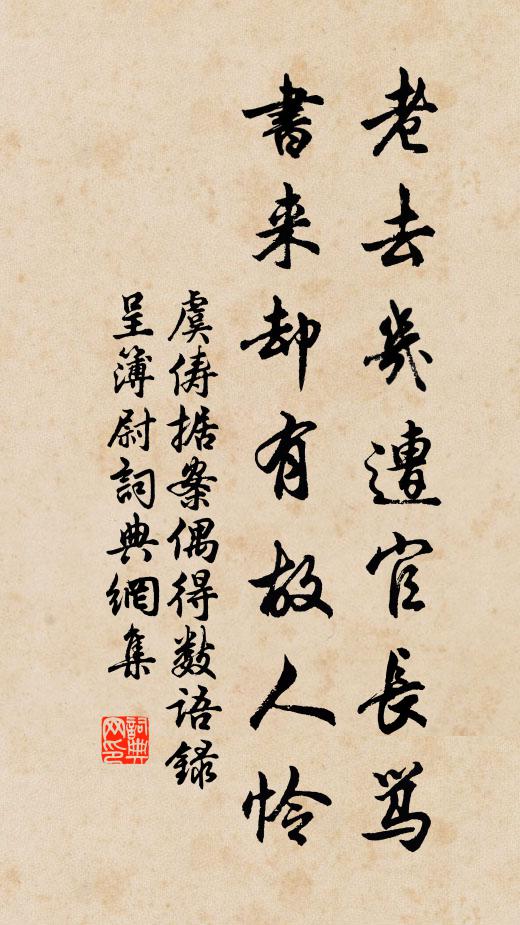 老去幾遭官長骂
書来却有故人怜
虞俦据案偶得数语錄
呈簿尉詞典網集
詞典网印